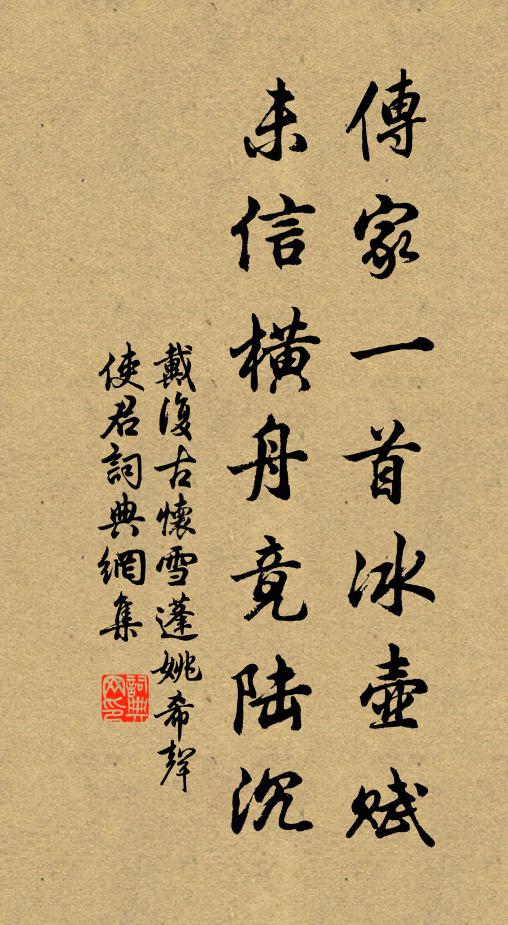 傳家一首冰壺賦
未信橫舟竟陆沉
戴復古懷雪蓬姚希聲
使君詞典網集
詞典網印